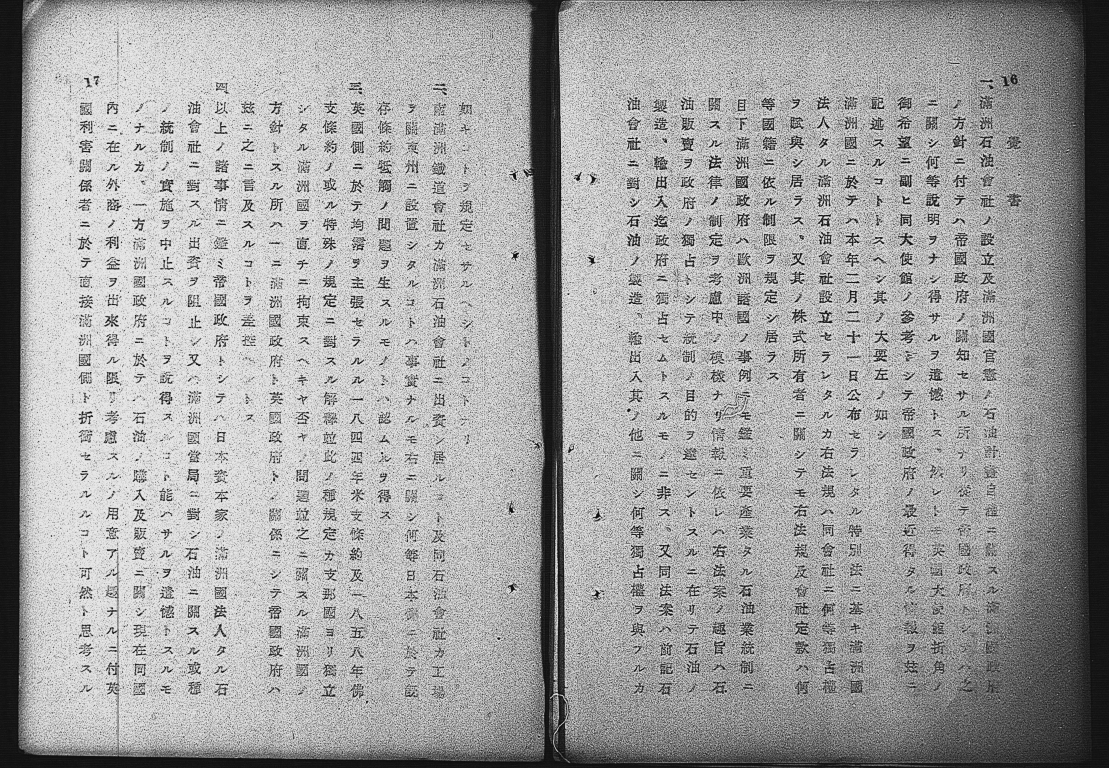 16
覺書
一、滿洲石油會社ノ設立及滿洲國官憲ノ石油計畫自體ニ關スル滿洲國政府
ノ方針ニ付テハ帝國政府ノ關知セサル所ナリ從テ帝國政府トシテハ之
ニ關シ何等說明ヲナシ得サルヲ遺憾トス、然レトモ英國大使館折角ノ
御希望ニ副ヒ同大使館ノ參考トシテ帝國政府ノ最近得タル情報ヲ玆ニ
記述スルコトトスヘシ其ノ大要左ノ如シ
滿洲國ニ於テハ本年二月二十一日公布セラレタル特別法ニ基キ滿洲國
法人タル滿洲石油會社設立セラレタルカ右法規ハ同會社ニ何等獨占權
ヲ賦與シ居ラス、又其ノ株式所有者ニ關シテモ右法規及會社定款ハ何
等國籍ニ依ル制限ヲ規定シ居ラス
目下滿洲國政府ハ歐洲諸國ノ事例ニモ鑑ミ重要產業タル石油業統制ニ
關スル法律ノ制定ヲ考慮中ノ模樣ナリ情報ニ依レハ右法案ノ趣旨ハ石
油販賣ヲ政府ノ獨占トシテ統制ノ目的ヲ達セントスルニ在リテ石油ノ
製造、輸出入迄政府ニ獨占セムトスルモノニ非ス、又同法案ハ前記石
油會社ニ對シ石油ノ製造、輸出入其ノ他ニ關シ何等獨占權ヲ與フルカ
17
如キコトヲ規定セサルヘシトノコトナリ
二、南滿洲鐵道會社カ滿洲石油會社ニ出資シ居ルコト及同石油會社カ工場
ヲ關東州ニ設置シタルコトハ事實ナルモ右ニ關シ何等日本側ニ於テ認
存條約牴觸ノ問題ヲ生スルモノトハ認ムルヲ得ス
三、英國側ニ於テ均霑ヲ主張セラルル一八四四年米支條約及一八五八年佛
支條約ノ或ル特殊ノ規定ニ對スル解釋並此ノ種規定カ支那國ヨリ獨立
シタル滿洲國ヲ直チニ拘束スヘキヤ否ヤノ問題並之ニ關スル滿洲國ノ
方針トスル所ハ一ニ滿洲國政府ト英國政府トノ關係ニシテ帝國政府ハ
玆ニ之ニ言及スルコトヲ差控ヘントス
四、以上ノ諸事情ニ鑑ミ帝國政府トシテハ日本資本家ノ滿洲國法人タル石
油會社ニ對スル出資ヲ阻止シ又ハ滿洲國當局ニ對シ石油ニ關スル或種
ノ統制ノ實施ヲ中止スルコトヲ說得スルコト能ハサルヲ遺憾トスルモ
ノナルカ、一方滿洲國政府ニ於テハ石油ノ購入及販賣ニ關シ現在同國
內ニ在ル外商ノ利益ヲ出來得ル限リ考慮スルノ用意アル趣ナルニ付英
國利害關係者ニ於テ直接滿洲國側ト折衝セラルルコト可然ト思考スル